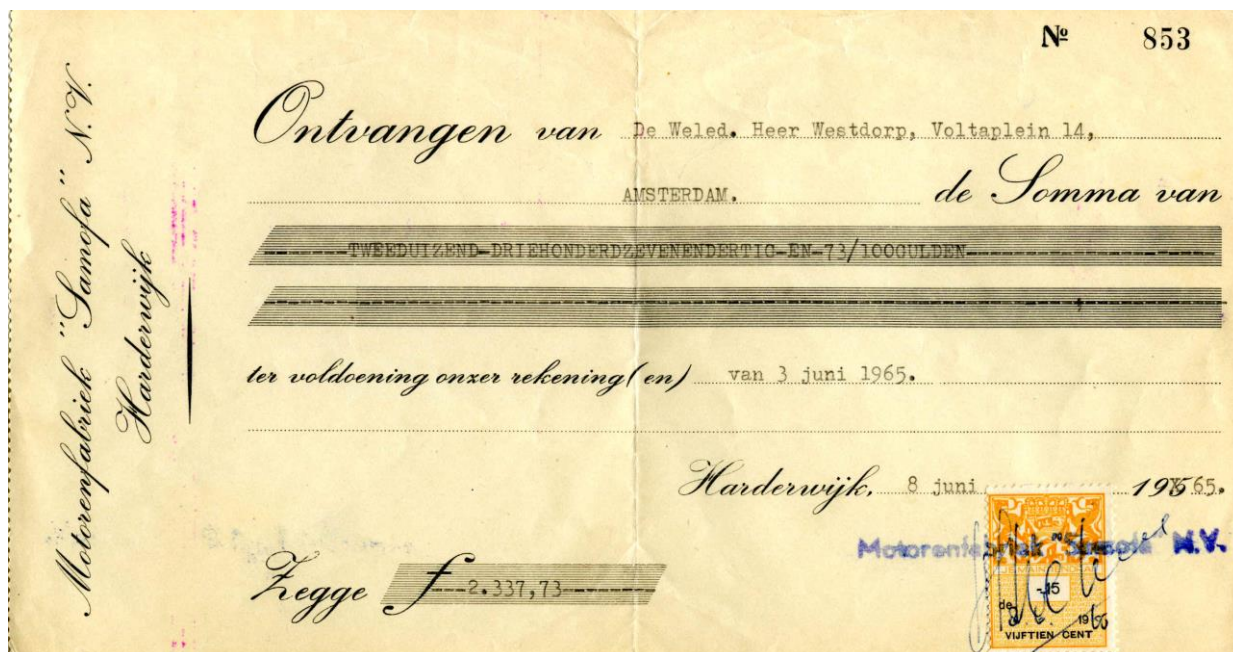 Nº 853
Motorenfabriek "Samofa" N.V.
Harderwijk
Ontvangen van De Weled. Heer Westdorp, Voltaplein 14,
AMSTERDAM. de Somma van
-TWEEDUIZEND-DRIEHONDERDZEVENENDERTIG-EN-73/100GULDEN-
ter voldoening onzer rekening(en) van 3 juni 1965.
Harderwijk, 8 juni 1965.
Motorenfabriek "Samofa" N.V.
-15
de 19
VIJFTIEN CENT
Zegge f 2.337,73